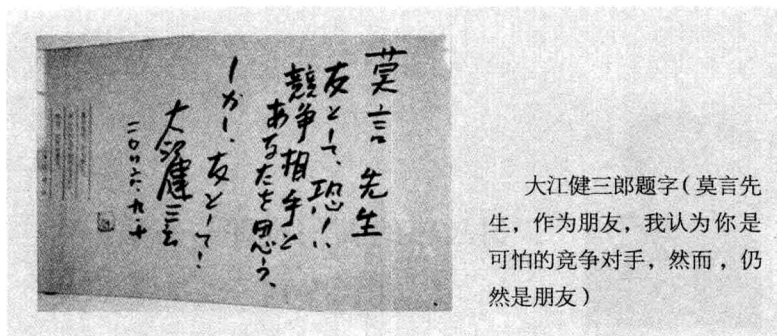 莫言先生
友として、恐しい
競争相手と
あなたを思う、
しかし、友として!
大江健三郎
二〇〇六、九、十
大江健三郎题字(莫言先
生，作为朋友，我认为你是
可怕的竞争对手，然而，仍
然是朋友)